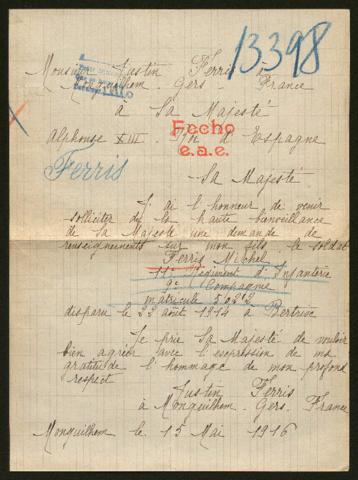 13398
Monsieur Justin Ferris à
Monguilhem. Gers. France
à Sa Majesté
Alphonse XIII. Roi d'Espagne
Fecho
e.a.e.
Ferris
Sa Majesté
J'ai l'honneur de venir
solliciter de la haute bienveillance
de Sa Majesté une demande de
renseignements sur mon fils le soldat
Ferris Michel
11e Régiment d'Infanterie
9e Compagnie
matricule
disparu le 22 août 1914 à Bertrix
Je prie Sa Majesté de vouloir
bien agréer avec l'expression de ma
gratitude l'hommage de mon profond
respect
Justin Ferris
à Monguilhem. Gers. France
Monguilhem le 15 Mai 1916